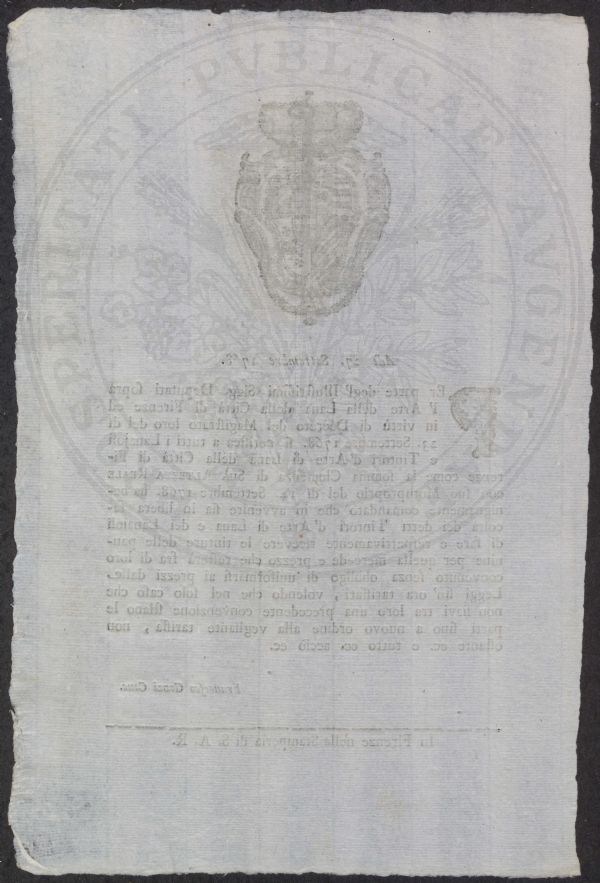 PROSPERITATI PUBLICAE AVGENDAE
Adì 27. Settembre 1768.
Per parte degl' Illustrissimi Sigg. Deputati sopra
l' Arte della Lana della Città di Firenze ed
in virtù di Decreto del Magistrato loro del dì
23. Settembre 1768. si notifica a tutti i Lanajoli
e Tintori d'Arte di Lana della Città di Fi-
renze come la somma Clemenza di SUA ALTEZZA REALE
con suo Motuproprio del dì 14. Settembre 1768. ha be-
nignamente comandato che in avvenire sia in libera fa-
coltà dei detti Tintori d'Arte di Lana e dei Lanaioli
di fare e respettivamente ricevere le tinture delle pan-
nine per quella mercede e prezzo che resterà fra di loro
convenuto senza obbligo di uniformarsi ai prezzi dalle
Leggi fin' ora tariffati, volendo che nel solo caso che
non siavi tra loro una precedente convenzione stiano le
parti fino a nuovo ordine alla vegliante tariffa, non
ostante ec. e tutto ec. acciò ec.
Francesco Canc.
In Firenze nella Stamperia di S. A. R.